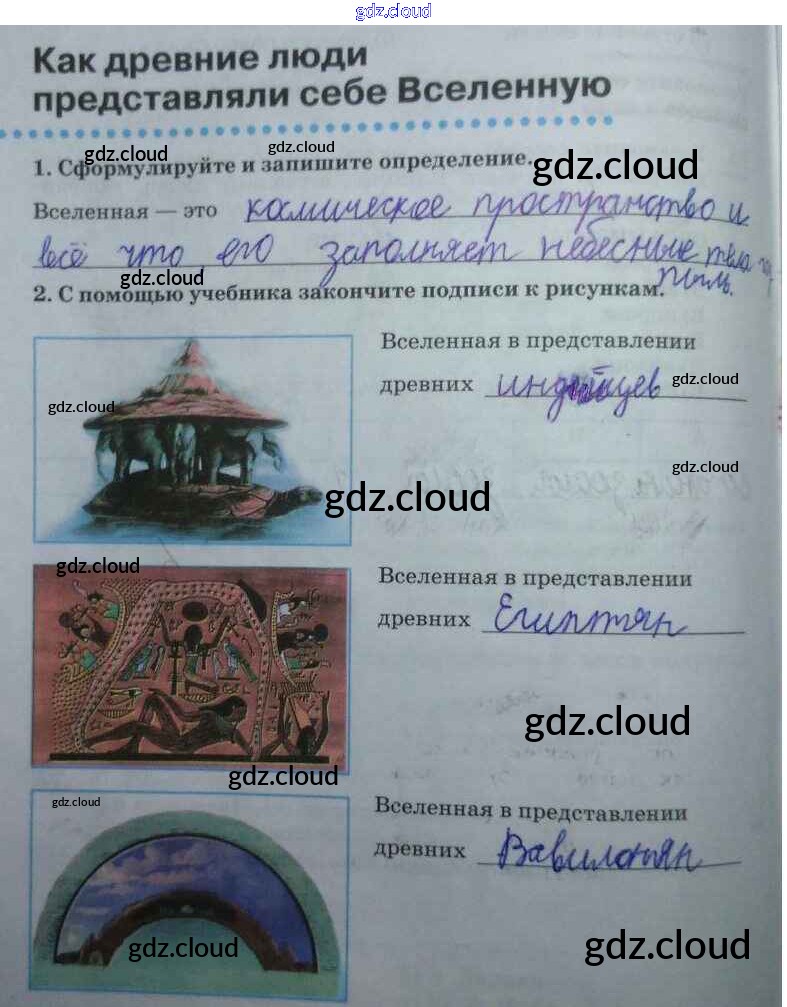 gdz.cloud
Как древние люди
представляли себе Вселенную
gdz.cloud gdz.cloud gdz.cloud
1. Сформулируйте и запишите определение.
Вселенная — это космическое пространство и
всё что его заполняет небесные тела газ,
gdz.cloud
пыль.
2. С помощью учебника закончите подписи к рисункам.
Вселенная в представлении
древних индийцев
gdz.cloud
gdz.cloud
gdz.cloud
gdz.cloud
gdz.cloud
Вселенная в представлении
древних Египтян
gdz.cloud
gdz.cloud
gdz.cloud
Вселенная в представлении
древних Вавилонян
gdz.cloud
gdz.cloud